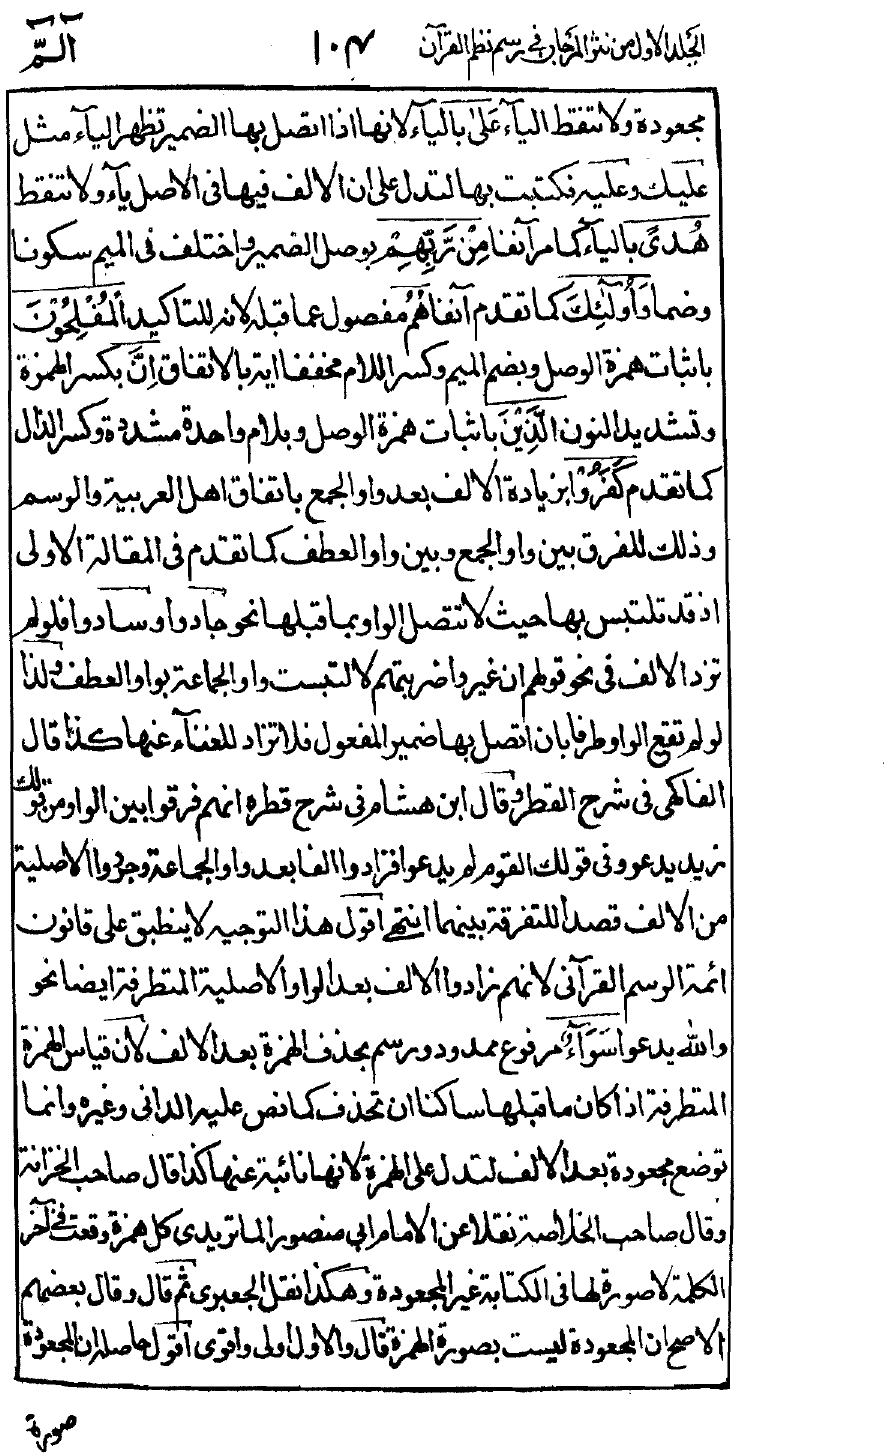 الجلد الاول من نثر المرجان فى رسم نظم القرآن ١٠٣ الٓـمّ
مجعودة ولا تنقط اليآء عَلىٰ باليآء لانها اذا اتصل بها الضمير تظهر اليآء مثل
عليك وعليه فكتبت بها لتدل على ان الالف فيها فى الاصل يآء ولا تنقط
هُدىً باليآء كما مر آنفا مِنْ رَّبِّهِمْ بوصل الضمير واختلف فى الميم سكونا
وضما وَاُولٰٓئِكَ كما تقدم آنفا هُمُ مفصول عما قبله لانه للتاكيد اَلْمُفْلِحُوْنَ
باثبات همزة الوصل وبضم الميم وكسر اللام مخففا اية بالاتفاق اِنَّ بكسر الهمزة
وتشديد النون الَّذِيْنَ باثبات همزة الوصل وبلام واحدة مشددة وكسر الذال
كما تقدم كَفَرُوْا بزيادة الالف بعد واو الجمع باتفاق اهل العربية والرسم
وذلك للفرق بين واو الجمع وبين واو العطف كما تقدم فى المقالة الاولى
اذ قد تلتبس بها حيث لا تتصل الواو بما قبلها نحو جادوا وسادوا فلو لم
تزد الالف فى نحو قولهم ان غيروا ضربتهم لالتبست واو الجماعة بواو العطف ولذا
لو لم تقع الواو طرفا بان اتصل بها ضمير المفعول فلا تزاد للغنآء عنها كذا قال
الفاكهى فى شرح القطر وقال ابن هشام فى شرح قطره انهم فرقوا بين الواو من قولك
زيد يدعو وفى قولك القوم لم يدعوا فزادوا الفا بعد واو الجماعة وجردوا الاصلية
من الالف قصدا للتفرقة بينهما انتهى اقول هذا التوجيه لا ينطبق على قانون
ائمة الرسم القرآنى لانهم زادوا الالف بعد الواو الاصلية المتطرفة ايضا نحو
والله يدعوا سَوَآءٌ مرفوع ممدود ورسم بحذف الهمزة بعد الالف لان قياس الهمزة
المتطرفة اذا كان ما قبلها ساكنا ان تحذف كما نص عليه الدانى وغيره وانما
توضع مجعودة بعد الالف لتدل على الهمزة لانها نائبة عنها كذا قال صاحب الخزانة
وقال صاحب الخلاصة نقلا عن الامام ابى منصور الماتريدى كل همزة وقعت فى آخر
الكلمة لا صورة لها فى الكتابة غير المجعودة وهكذا نقل الجعبرى ثم قال وقال بعضهم
الاصح ان المجعودة ليست بصورة الهمزة قال والاول اولى واقوى اقول حاصله ان المجعودة
صورة